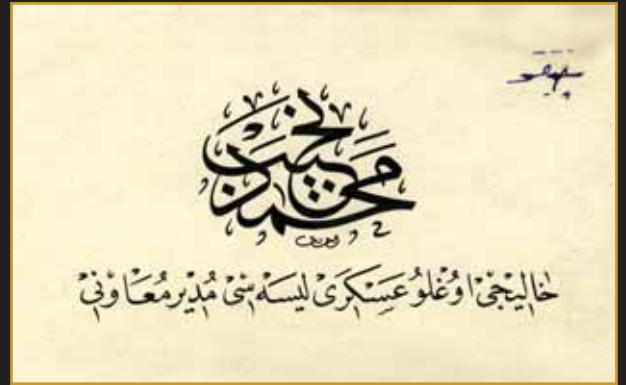 محمد نجيب
خاليجى اوغلو عسكرى ليسه سى مدير معاونى